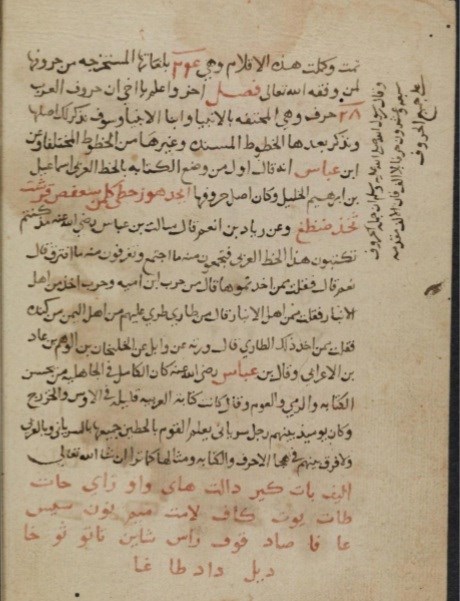 تمت وكملت هذه الاقلام وهي بلغاتها المستخرجه من حروفها
لمن وفقه الله تعالى فصل اخر واعلم يا اخي ان حروف العربيه
٢٨ حرف وهي المختصه بالانبيا وابنا الانبيا وسوف نذكر لك اصلها
ونذكر بعدها الخطوط المسنده وغيرها من الخطوط المختلفه وعن
ابن عباس انه قال اول من وضع الكتابه بالخط العربي اسماعيل
بن ابرهيم الخليل وكان اصل حروفها ابجد هوز حطي كلمن سعفص قرشت
ثخذ ضظغ وعن زياد بن انعم قال سالت بن عباس رضي الله عنه هل كنتم
تكتبون هذا الخط العربي فتجمعون منه ما اجتمع وتفرقون منه ما افترق قال
نعم قال فقلت ممن اخذتموها قال من حرب ابن اميه وحرب اخذ من اهل
الانبار فقلت ممن اهل الانبار قال من طاري طري عليهم من اهل اليمن من كنده
فقلت ممن اخذ ذلك الطاري قال ورثه عن وايل عن الخلجان بن الوهم بن عاد
بن الاعرابي وقال بن عباس رضي الله عنه كان الكامل في الجاهليه من يحسن
الكتابه والرمي والعوم وقال كانت كتابة العربيه قليله في الاوس والخزرج
وكان يوميذ بينهم رجل سرياني يعلم القوم بالخطين جميعها بالسرياني وبالعربي
ولا فرق بينهم في هجا الاحرف والكتابه ومثالها كما ترا ان شا الله تعالى
الف بات كير دالت هاي واو زاي حات
طات يوت كاف لامت ميم نون سمس
عا فا صاد قوف راس شاين تاثو ثو خا
ديل داد طا غا
علي جميع الحروف